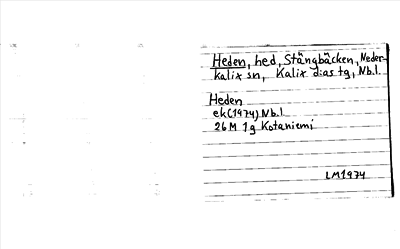 Heden, hed, Stångbäcken, Neder-
Kalix sn, Kalix dias tg, Nb.l.
Heden
ek (1974) Nb.l.
26 M 1g Kotaniemi
LM1974